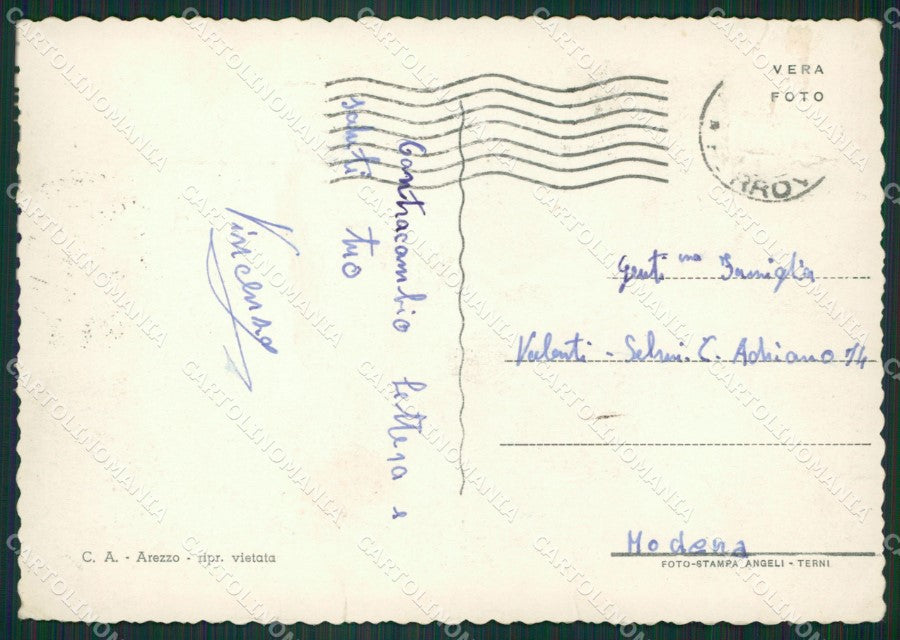 VERA
FOTO
Contracambio lettera e
saluti tuo
Vincenso
Gent.ma Famiglia
Valenti - C. Adriano 74
Modena
C. A. - Arezzo - ripr. vietata
FOTO-STAMPA ANGELI - TERNI
CARTOLINOMANIA